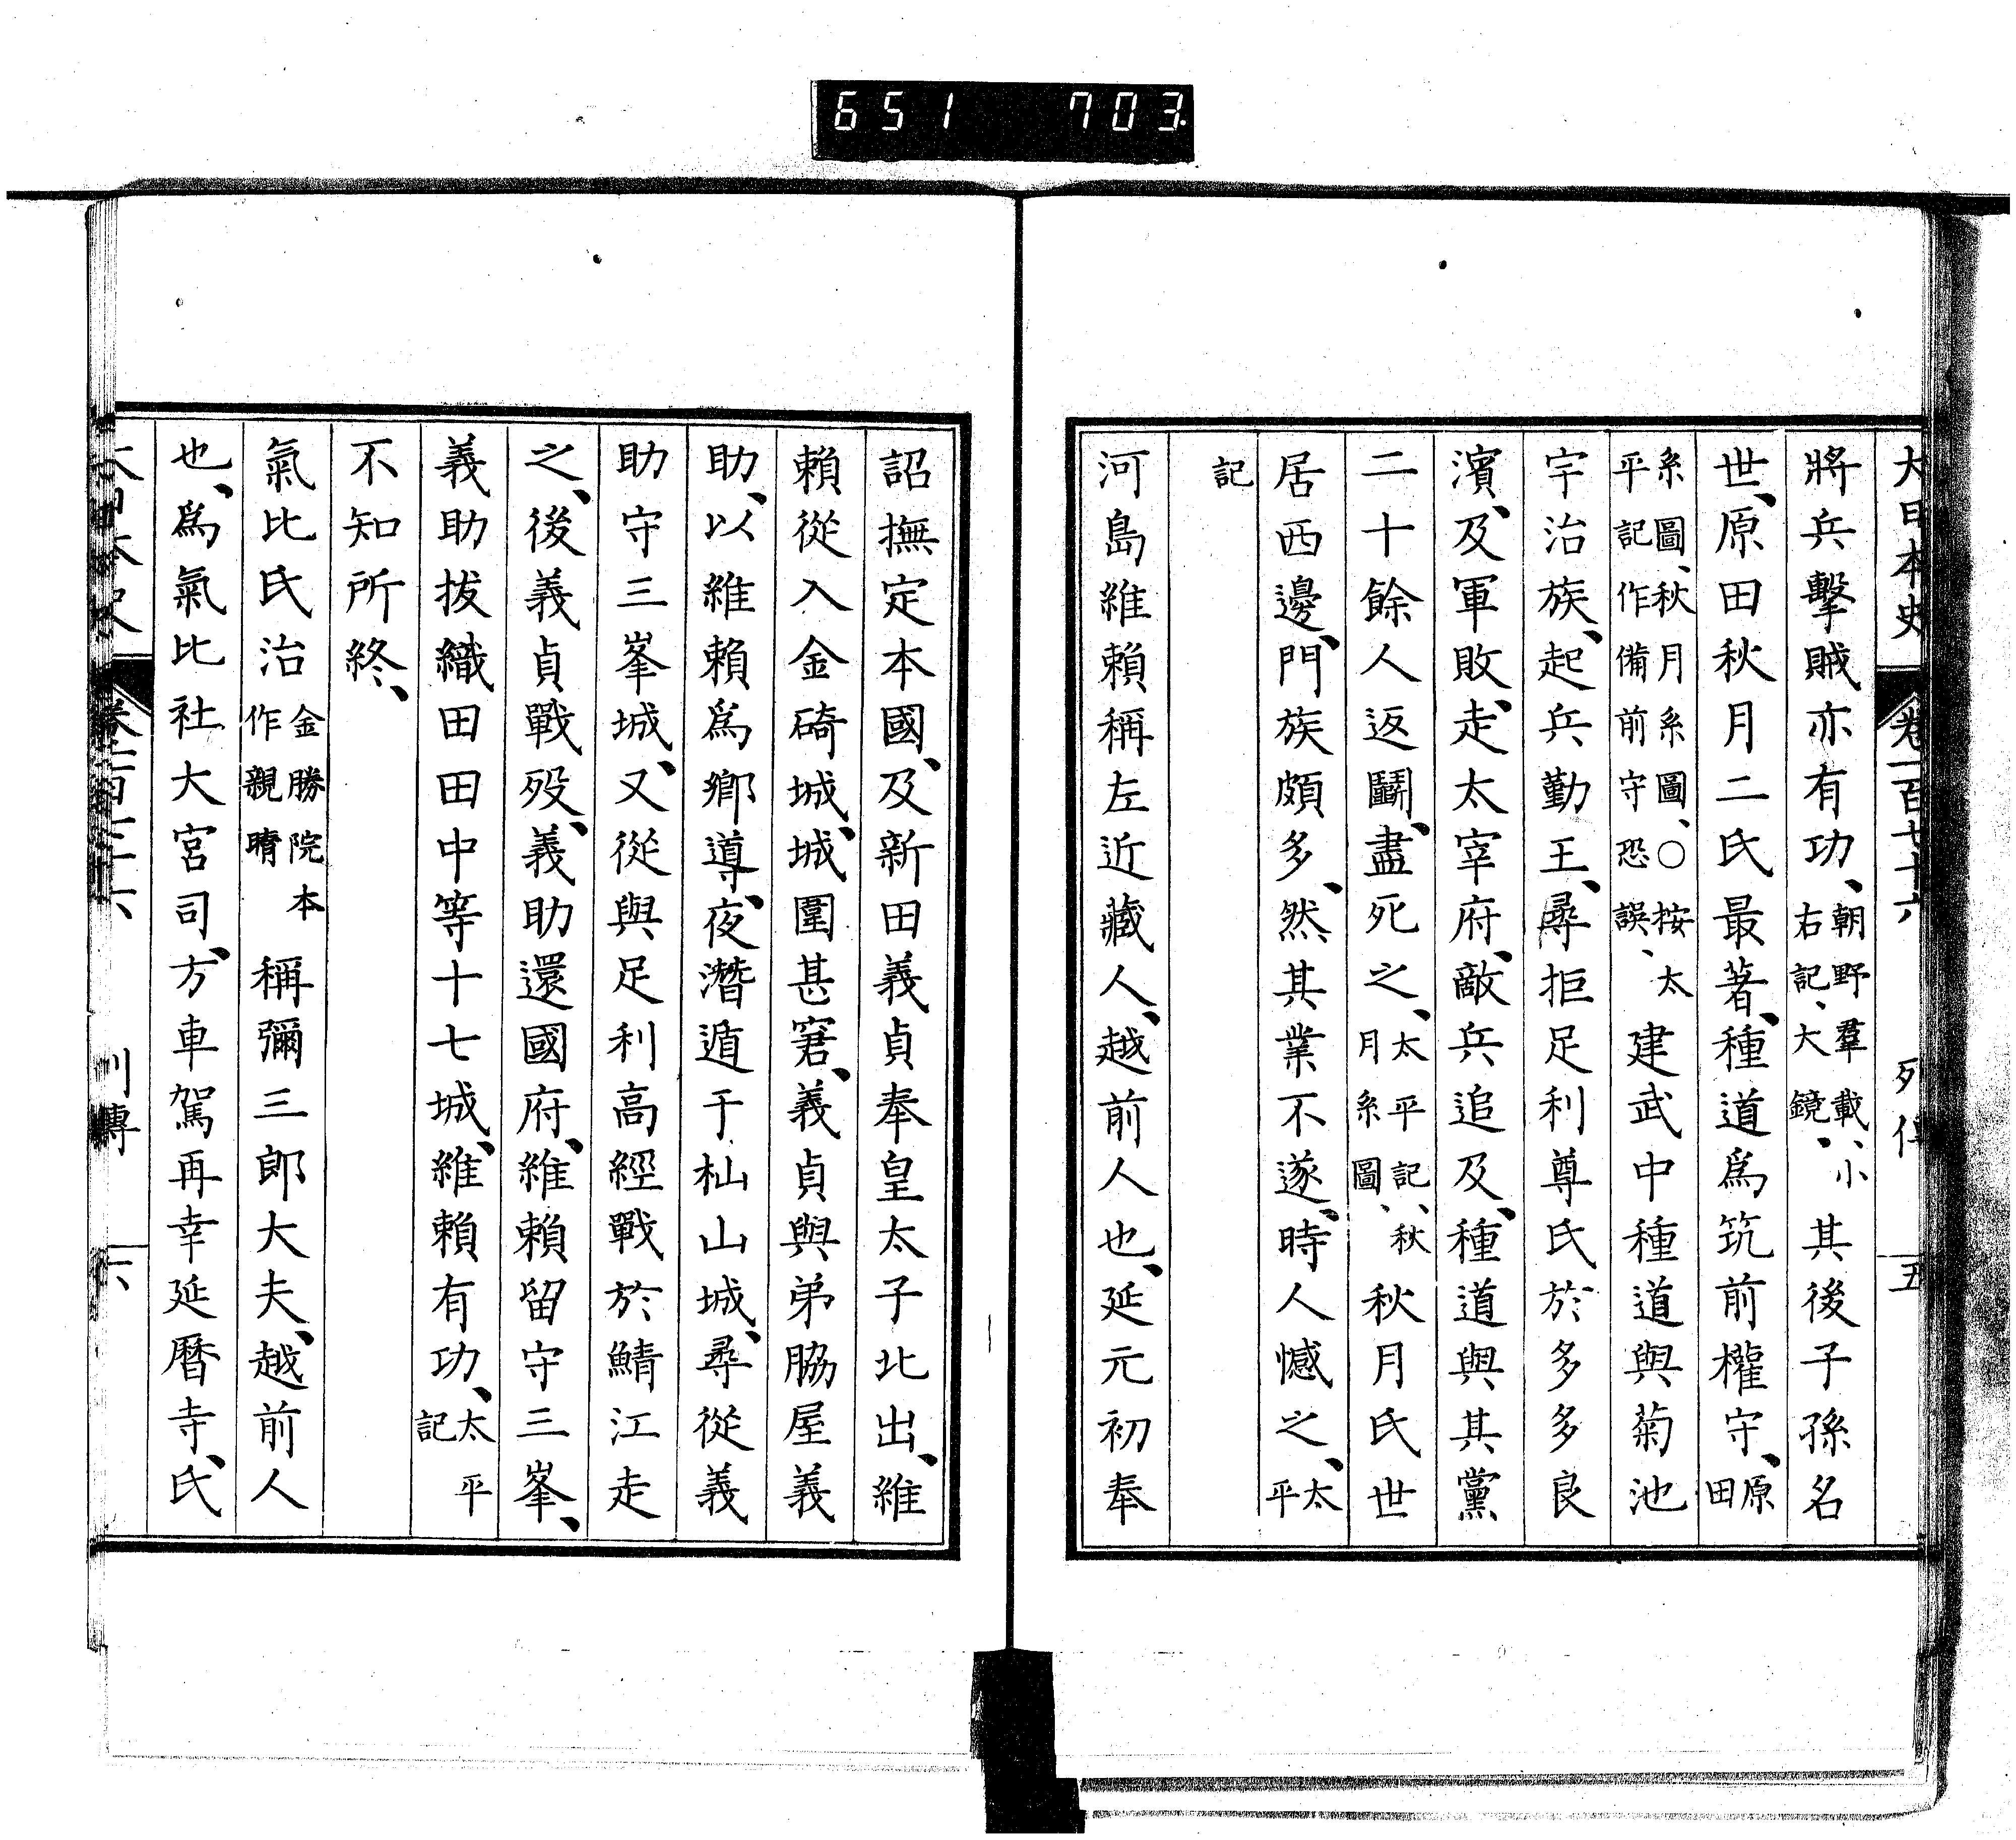 651 703
大日本史 卷一百七十六 列傳 五
將兵擊賊亦有功、朝野羣載、小右記、大鏡、其後子孫名
世、原田秋月二氏最著、種道爲筑前權守、原田
系圖、秋月系圖、○按太平記作備前守恐誤、建武中種道與菊池
宇治族、起兵勤王、尋拒足利尊氏於多多良
濱、及軍敗走、太宰府、敵兵追及、種道與其黨
二十餘人返鬭、盡死之、太平記、秋月系圖、秋月氏世
居西邊、門族頗多、然其業不遂、時人憾之、太平
記
河島維賴稱左近藏人、越前人也、延元初奉
詔撫定本國、及新田義貞奉皇太子北出、維
賴從入金碕城、城圍甚窘、義貞與弟脇屋義
助、以維賴爲鄉導、夜潛遁于杣山城、尋從義
助守三峯城、又從與足利高經戰於鯖江走
之、後義貞戰歿、義助還國府、維賴留守三峯、
義助拔織田田中等十七城、維賴有功、太平記
不知所終、
氣比氏治金勝院本作親晴稱彌三郎大夫、越前人
也、爲氣比社大宮司、方車駕再幸延曆寺、氏
大日本史 卷一百七十六 列傳 六